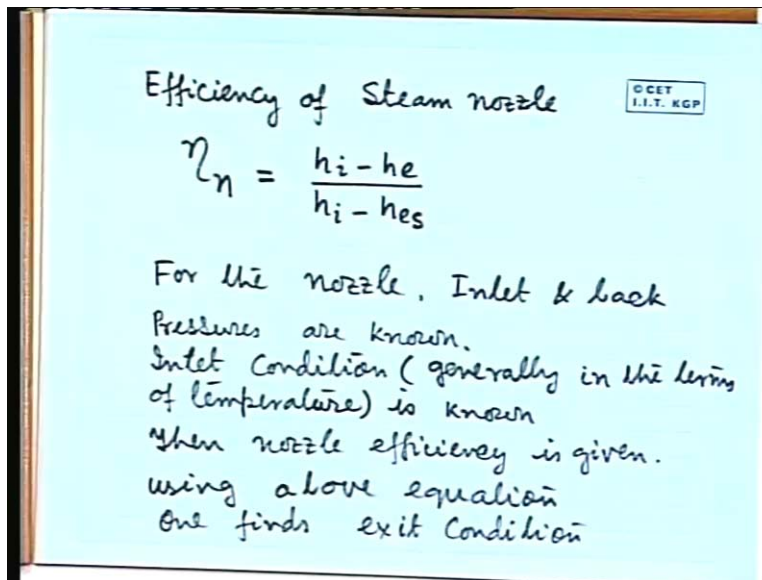 Efficiency of Steam nozzle
© CET
I.I.T. KGP
ηn = hi - he / hi - hes
For the nozzle, Inlet & back
Pressures are known.
Inlet Condition (generally in the terms
of temperature) is known
Then nozzle efficiency is given.
using above equation
One finds exit Condition